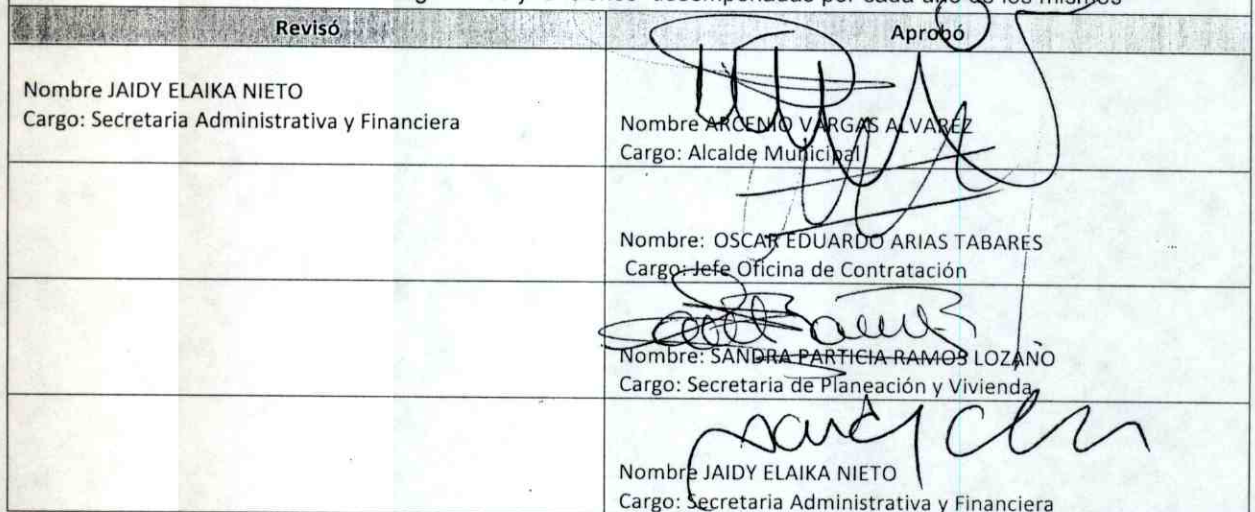 desempeñadas por cada uno de los mismos
Revisó
Aprobó
Nombre JAIDY ELAIKA NIETO
Cargo: Secretaria Administrativa y Financiera
Nombre ARCENIO VARGAS ALVAREZ
Cargo: Alcalde Municipal
Nombre: OSCAR EDUARDO ARIAS TABARES
Cargo: Jefe Oficina de Contratación
Nombre: SANDRA PARTICIA RAMOS LOZANO
Cargo: Secretaria de Planeación y Vivienda
Nombre JAIDY ELAIKA NIETO
Cargo: Secretaria Administrativa y Financiera